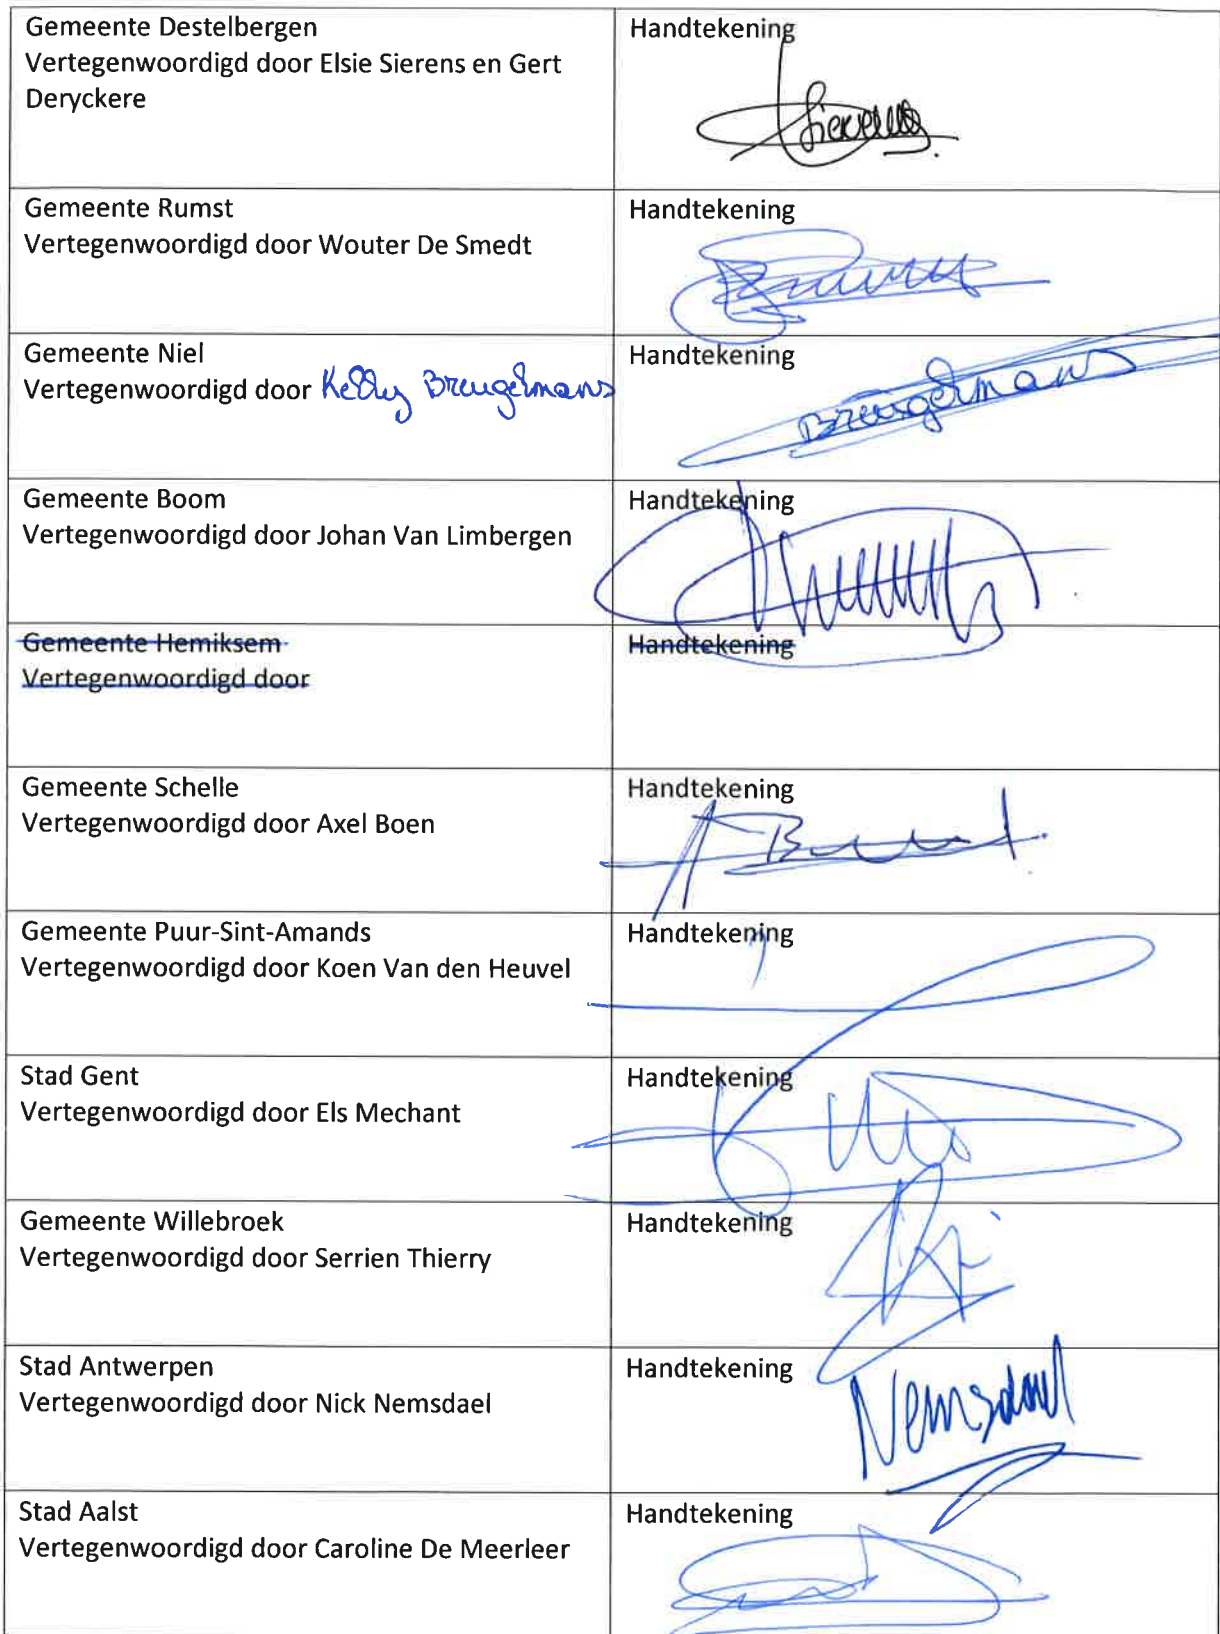 Gemeente Destelbergen
Vertegenwoordigd door Elsie Sierens en Gert
Deryckere
Handtekening
Sierens
Gemeente Rumst
Vertegenwoordigd door Wouter De Smedt
Handtekening
Gemeente Niel
Vertegenwoordigd door Kelly Breugelmans
Handtekening
Breugelmans
Gemeente Boom
Vertegenwoordigd door Johan Van Limbergen
Handtekening
Gemeente Hemiksem
Vertegenwoordigd door
Handtekening
Gemeente Schelle
Vertegenwoordigd door Axel Boen
Handtekening
Gemeente Puur-Sint-Amands
Vertegenwoordigd door Koen Van den Heuvel
Handtekening
Stad Gent
Vertegenwoordigd door Els Mechant
Handtekening
Gemeente Willebroek
Vertegenwoordigd door Serrien Thierry
Handtekening
Stad Antwerpen
Vertegenwoordigd door Nick Nemsdael
Handtekening
Nemsdael
Stad Aalst
Vertegenwoordigd door Caroline De Meerleer
Handtekening